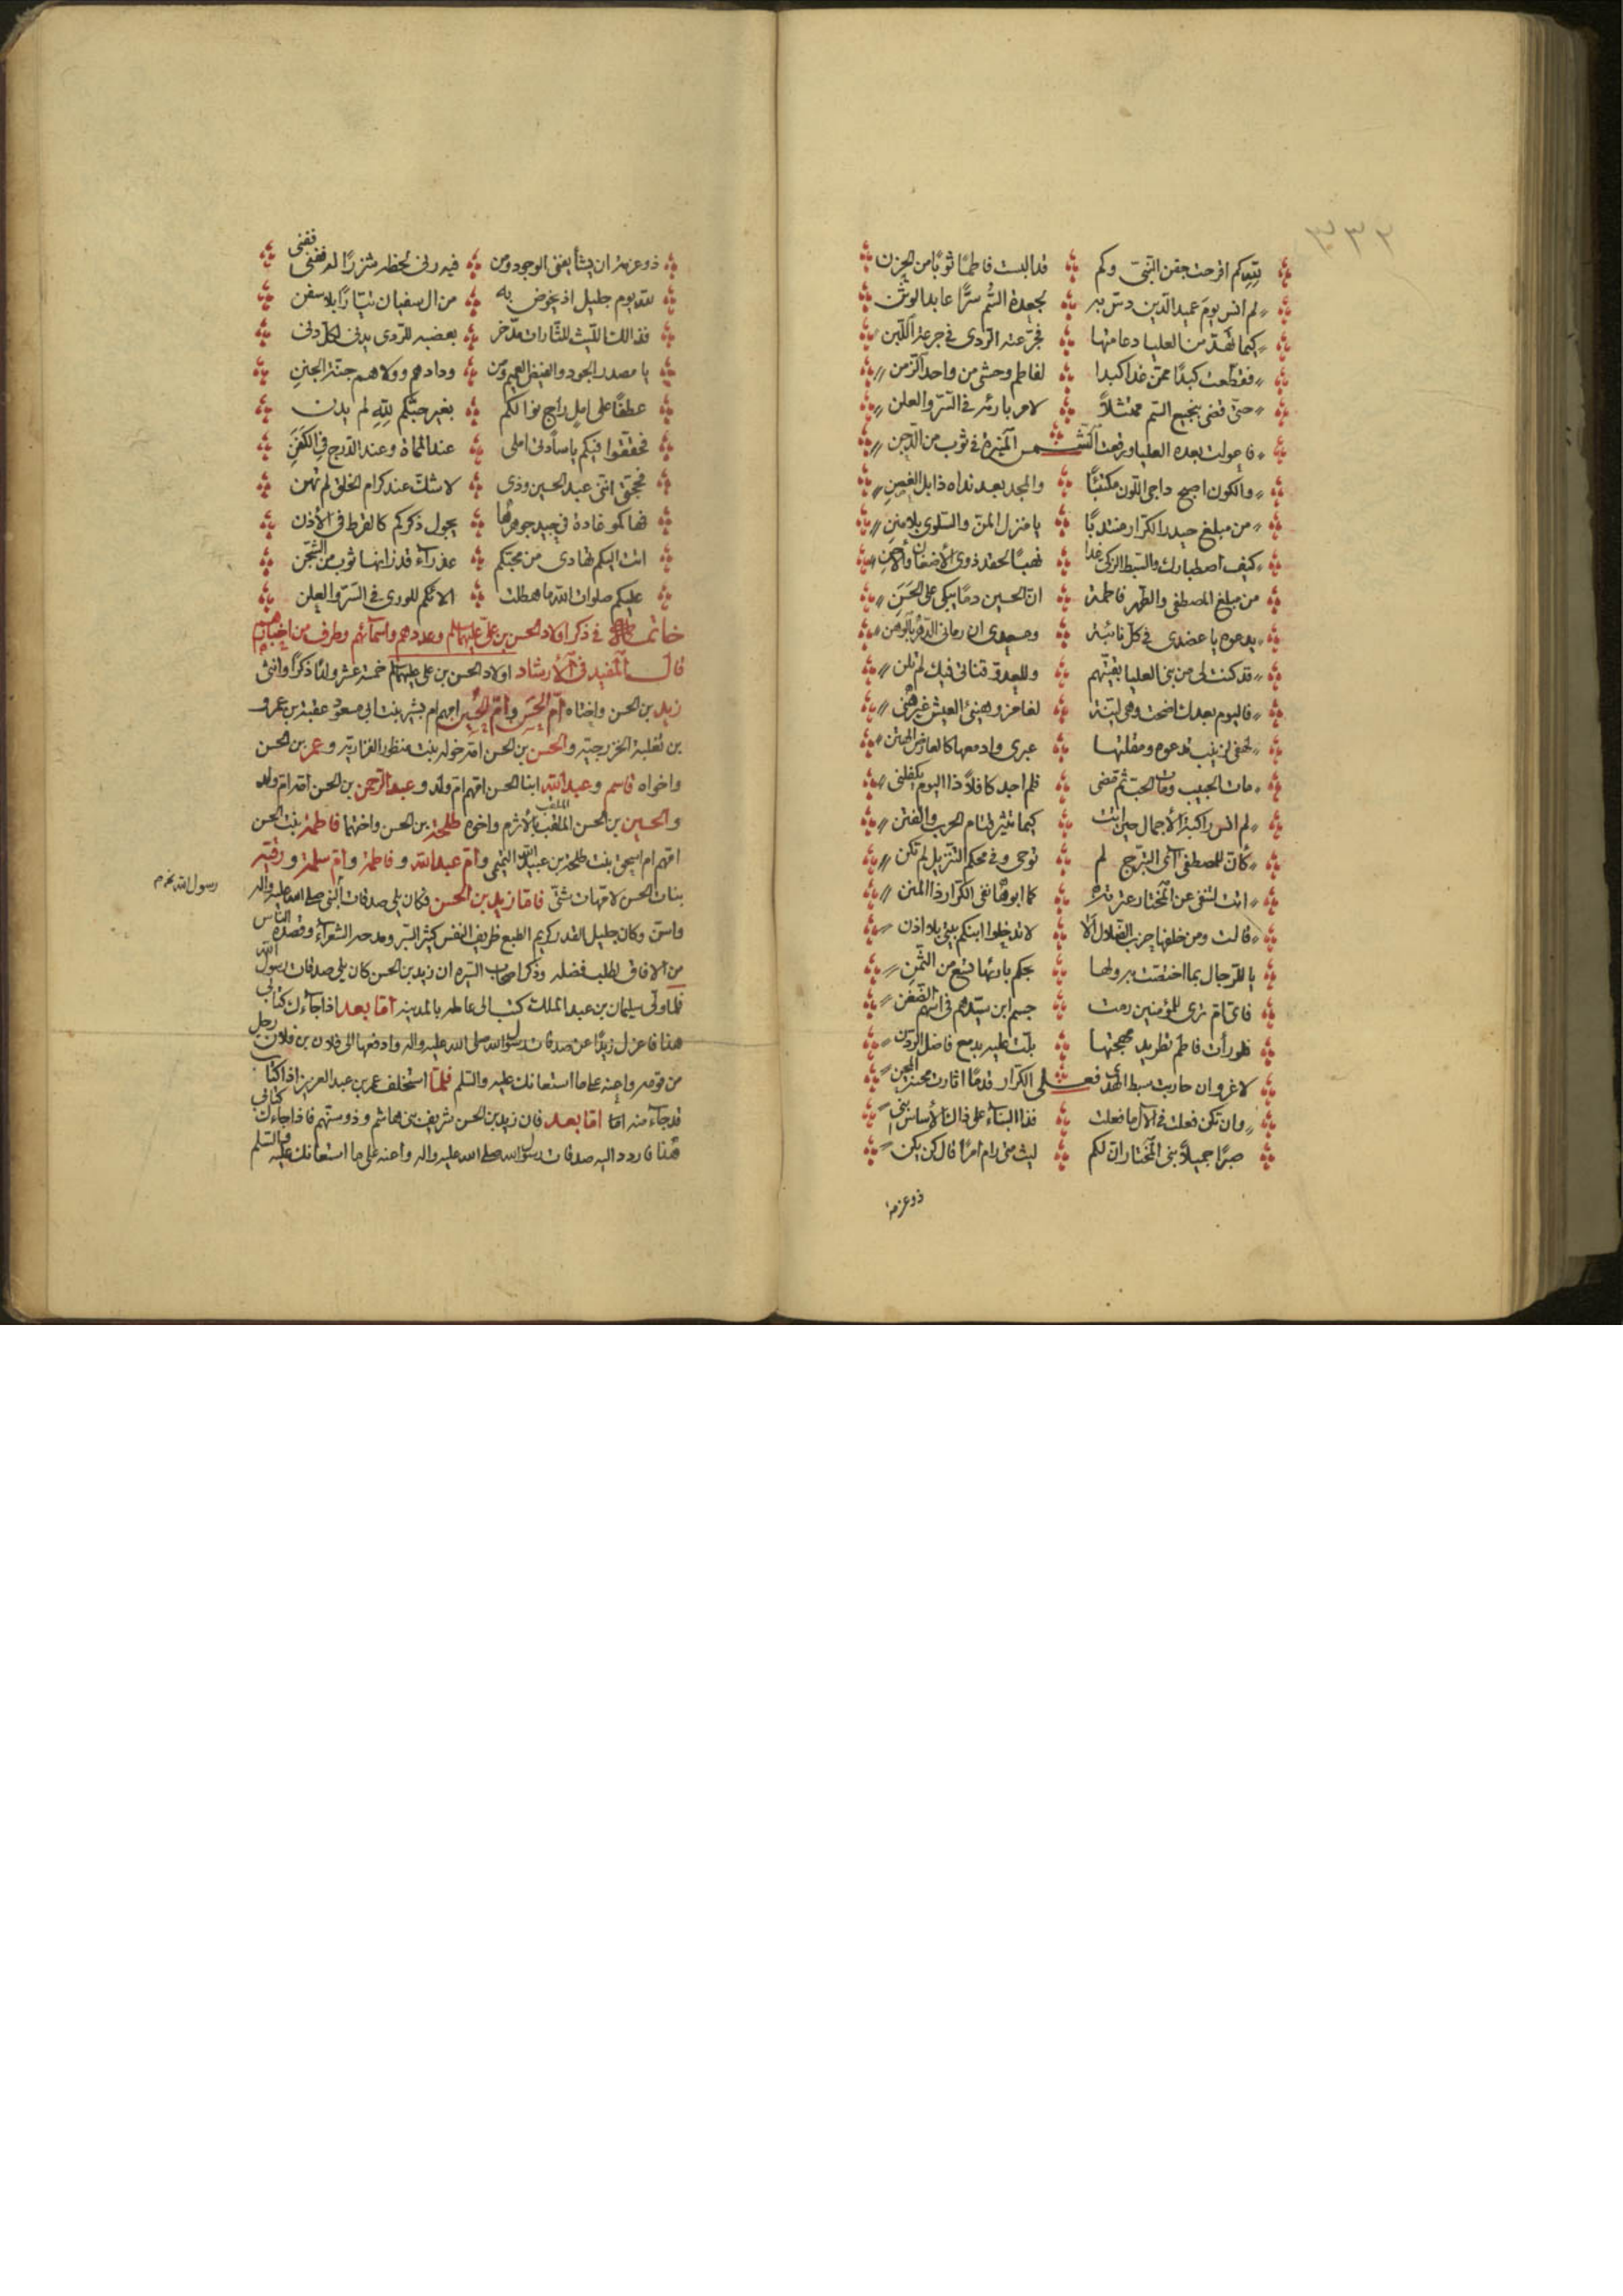 ٣٣٢
كم اقرحت جفن النبي وكم قد البست فاطمًا ثوبًا من الحزن
لم انس يوم عميد الدين دس به لجعدة السُّم سرًّا عابد الوثن
كيما تهد من العليا دعامتها فجرعته الردى في جرعة اللبن
فقطعت كبدًا ممن غدا كبدا لفاطم وحشى من واحد الزمن
حتى قضى بنجيع السم ممتثلاً لامر بارئه في السر والعلن
فاعولت بعده العليا وبرقعت الشمس المنيرة في ثوب من الدجن
والكون اصبح داجي اللون مكتئبًا والمجد بعد نداه ذابل الغصن
من مبلغ حيدر الكرار منتدبًا يا منزل المن والسلوى بلا منن
كيف اصطبارك والسبط الزكي غدا نهبًا لحقد ذوي الأضغان والأحن
من مبلغ المصطفى والطهر فاطمة ان الحسين دمًا يبكي على الحسن
يدعوه يا عضدي في كل نائبة ومسعدي ان رماني الدهر بالوهن
قد كنت لي من بني العليا بقيتهم وللعدو قناتي فيك لم تلن
فاليوم بعدك اضحت وهي لينة لغامز وهنيئ العيش غير هني
لهفي لزينب تدعوه ومقلتها عبرى وادمعها كالعارض الهتن
مات الحبيب ومات الحب ثم قضى فلم اجد كافلاً ذا اليوم يكفلني
لم انس راكبة الأجمال حين اتت كيما تثير قتام الحرب والفتن
كأن للمصطفى آي التبرج لم توحى وفي محكم التنزيل لم تكن
اتت لتنفي عن المختار عترته كما ابوها نفى الكرار ذا المنن
قالت ومن خلفها حزب الضلال ألا لا تدخلوا ابنكم بيتي بلا اذن
يا للرجال بما اختصت به ولها بحكم بارئها تسع من الثمن
فاي ام ترى للمؤمنين رمت جسم ابن سيدهم في اسهم الضغن
فلو رأت فاطم تطريد مهجتها بكت عليه بدمع فاضل الردن
لا غرو ان حاربت سبط الهدى فعلى الكرار قدمًا اثارت محنة المحن
وان تكن فعلت في الآل ما فعلت فذا البناء على ذاك الأساس بني
صبرًا جميلاً بني المختار ان لكم ليث متى رام امرًا قال كن يكن
ذو عزمة
ذو عزمة ان يشأ يفنى الوجود ومن فيه رنى لحظه شزرًا له ففني
ففني
لله يوم جليل اذ يخوض به من ال سفيان تيارًا بلا سفن
فذالك الليث للثارات مدخر بعضبه للردى يدني لكل دني
يا مصدر الجود والفيض العميم ومن ودادهم وولاهم جنة الجنن
عطفًا على امل راج نوالكم بغير حبكم لله لم يدن
فحققوا فيكم يا سادتي املي عند المماة وعند الدرج في الكفن
فحجتي انني عبد الحسين وذي لا شك عند كرام الخلق لم تهن
فهاكمو غادة في جيد جوهرها يجول ذكركم كالقرط في الأذن
اتت اليكم تهادى من محبكم عذراء قد زانها ثوب من الشجن
عليكم صلوات الله ما هطلت الائكم للورى في السر والعلن
خاتمة في ذكر اولاد الحسن بن علي عليهما السلم وعددهم واسمآئهم وطرف من اخبارهم
قال المفيد في الأرشاد اولاد الحسن بن علي عليهما السلم خمسة عشر ولدًا ذكرًا وانثى
زيد بن الحسن واختاه أم الحسن وأم الحسين امهم ام بشير بنت ابي مسعود عقبة بن عمرو
بن ثعلبة الخزرجية والحسن بن الحسن امه خولة بنت منظور الفزارية وعمر بن الحسن
واخواه قاسم وعبد الله ابنا الحسن امهم ام ولد وعبد الرحمن بن الحسن امه ام ولد
والحسين بن الحسن الملقب بالأثرم واخوه طلحة بن الحسن واختهما فاطمة بنت الحسن
امهم ام اسحق بنت طلحة بن عبيد الله التيمي وأم عبد الله وفاطمة وأم سلمة ورقية
بنات الحسن لامهات شتى فاما زيد بن الحسن فكان يلي صدقات النبي صلى الله عليه واله
رسول الله
واسن وكان جليل القدر كريم الطبع ظريف النفس كثير البر ومدحه الشعراء وقصده الناس
من الافاق لطلب فضله وذكر اصحاب السيره ان زيد بن الحسن كان يلي صدقات رسول الله
فلما ولي سليمان بن عبد الملك كتب الى عامله بالمدينة أما بعد اذا جآءك كتابي
هذا فاعزل زيدًا عن صدقات رسول الله صلى الله عليه واله وادفعها الى فلان بن فلان رجل
من قومه واعنه على ما استعانك عليه والسلم فلما استخلف عمر بن عبد العزيز اذا كتاب
قد جآء منه اما بعد فان زيد بن الحسن شريف بني هاشم وذو سنهم فاذا جاءك كتابي
هذا فاردد اليه صدقات رسول الله صلى الله عليه واله واعنه على ما استعانك عليه والسلم